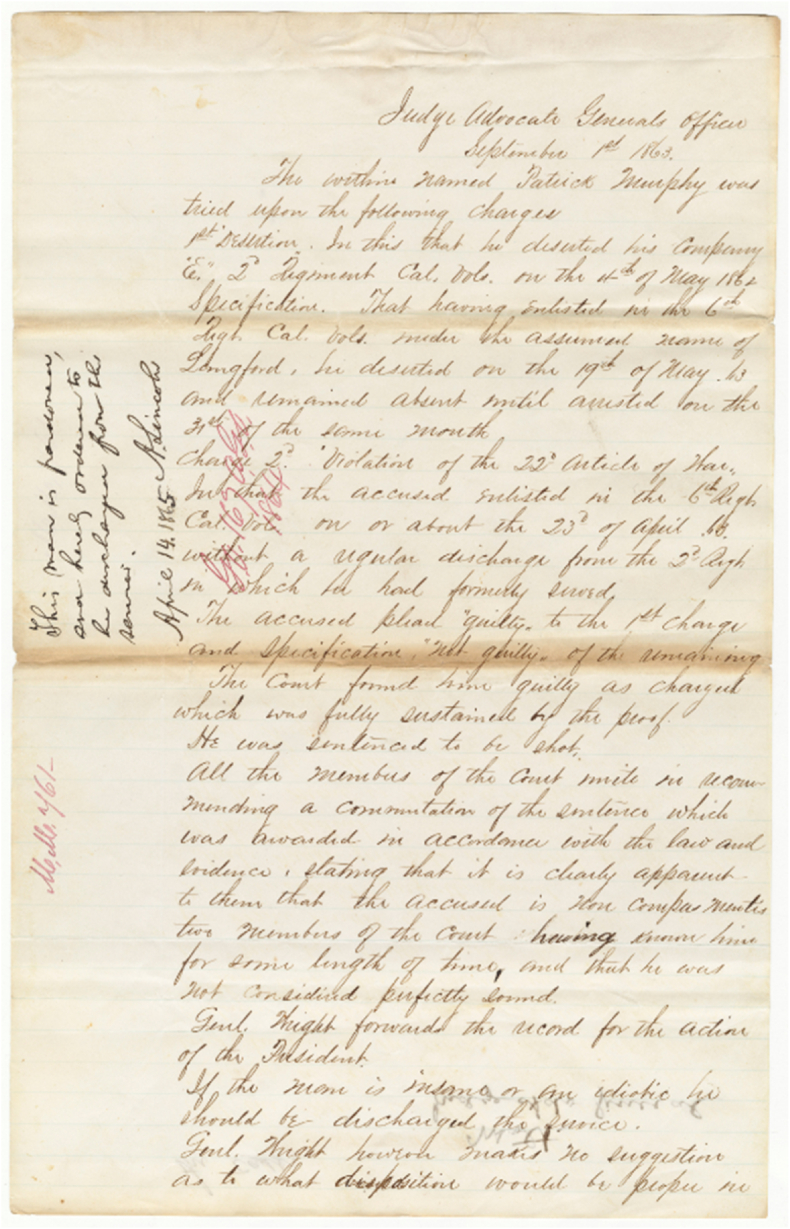 Judge Advocate Generals Office
September 1st 1863.
The within named Patrick Murphy was
tried upon the following charges
1st Desertion. In this that he deserted his company
"E." 2d Regiment Cal. Vols. on the 4th of May 1862
Specification. That having enlisted in the 6th
Regt. Cal. Vols. under the assumed name of
Langford, he deserted on the 19th of May. 63
and remained absent until arrested on the
31st of the same month
Charge 2d. "Violation of the 22d Article of War,
In that the accused enlisted in the 6th Regt
Cal. Vols. on or about the 23d of April. 63.
without a regular discharge from the 2d Regt
in which he had formerly served,
The accused plead "guilty" to the 1st Charge
and Specification, "not guilty" of the remaining
The Court found him guilty as charged
which was fully sustained by the proof.
He was sentenced to be shot,
All the members of the Court unite in recom-
mending a commutation of the sentence which
was awarded in accordance with the law and
evidence, stating that it is clearly apparent
to them that the accused is Non Compos Mentis
two members of the Court having known him
for some length of time, and that he was
not considered perfectly sound.
Genl. Wright forwards the record for the action
of the President.
If the man is insane or an idiotic he
should be discharged the service.
Genl. Wright however makes no suggestion
as to what disposition would be proper in
This man is pardoned,
and hereby ordered to
be discharged from the
service.
April 14. 1865 A. Lincoln